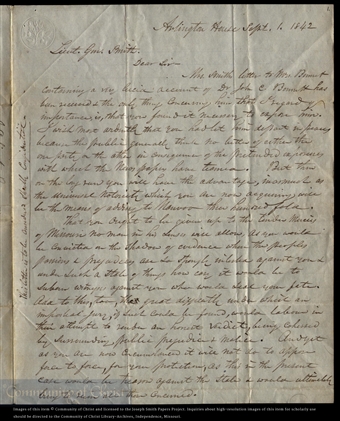 Arlington House Sept. 1. 1842
Lieut. Gen. Smith.
Dear Sir
Mrs. Smith's letter to Mrs. Bennet
containing a very lucid account of Dr. John C. Bennett has
been received & the only thing concerning him that I regard of
importance, is, that you found it necessary to expose him.
I will most that you had let him depart in peace,
because the public generally think no better of either the
one party or the other in consequence of the pretended exposures
with which the News paper have teemed. But then
on the long run you will have the advantage, inasmuch as
the universal notoriety which you are now acquiring, will
be the means of adding to Nauvoo three hundred fold.
That you ought to be given up to the tender mercies
of Missouri no man in his senses will allow, as you would
be convicted on the shadow of evidence when the peoples
passions & prejudices are so strongly enlisted against you &
under such a state of things how easy it would be to
suborn witnesses against you who would seal your fate.
Add to this, too, the great difficulty under which an
impartial jury, if such could be found, would labour in
their attempt to render an honest verdict, being coloured
by surrounding public prejudice & malice. And yet
as you are now circumstanced it will not do to oppose
force to force, for your protection, as this in the present
case would be treason against the State & would ultimately
concerned.
Images of this item © Community of Christ and licensed to the Joseph Smith Papers Project. Inquiries about high-resolution images of this item for scholarly use
should be directed to the Community of Christ Library-Archives, Independence, Missouri